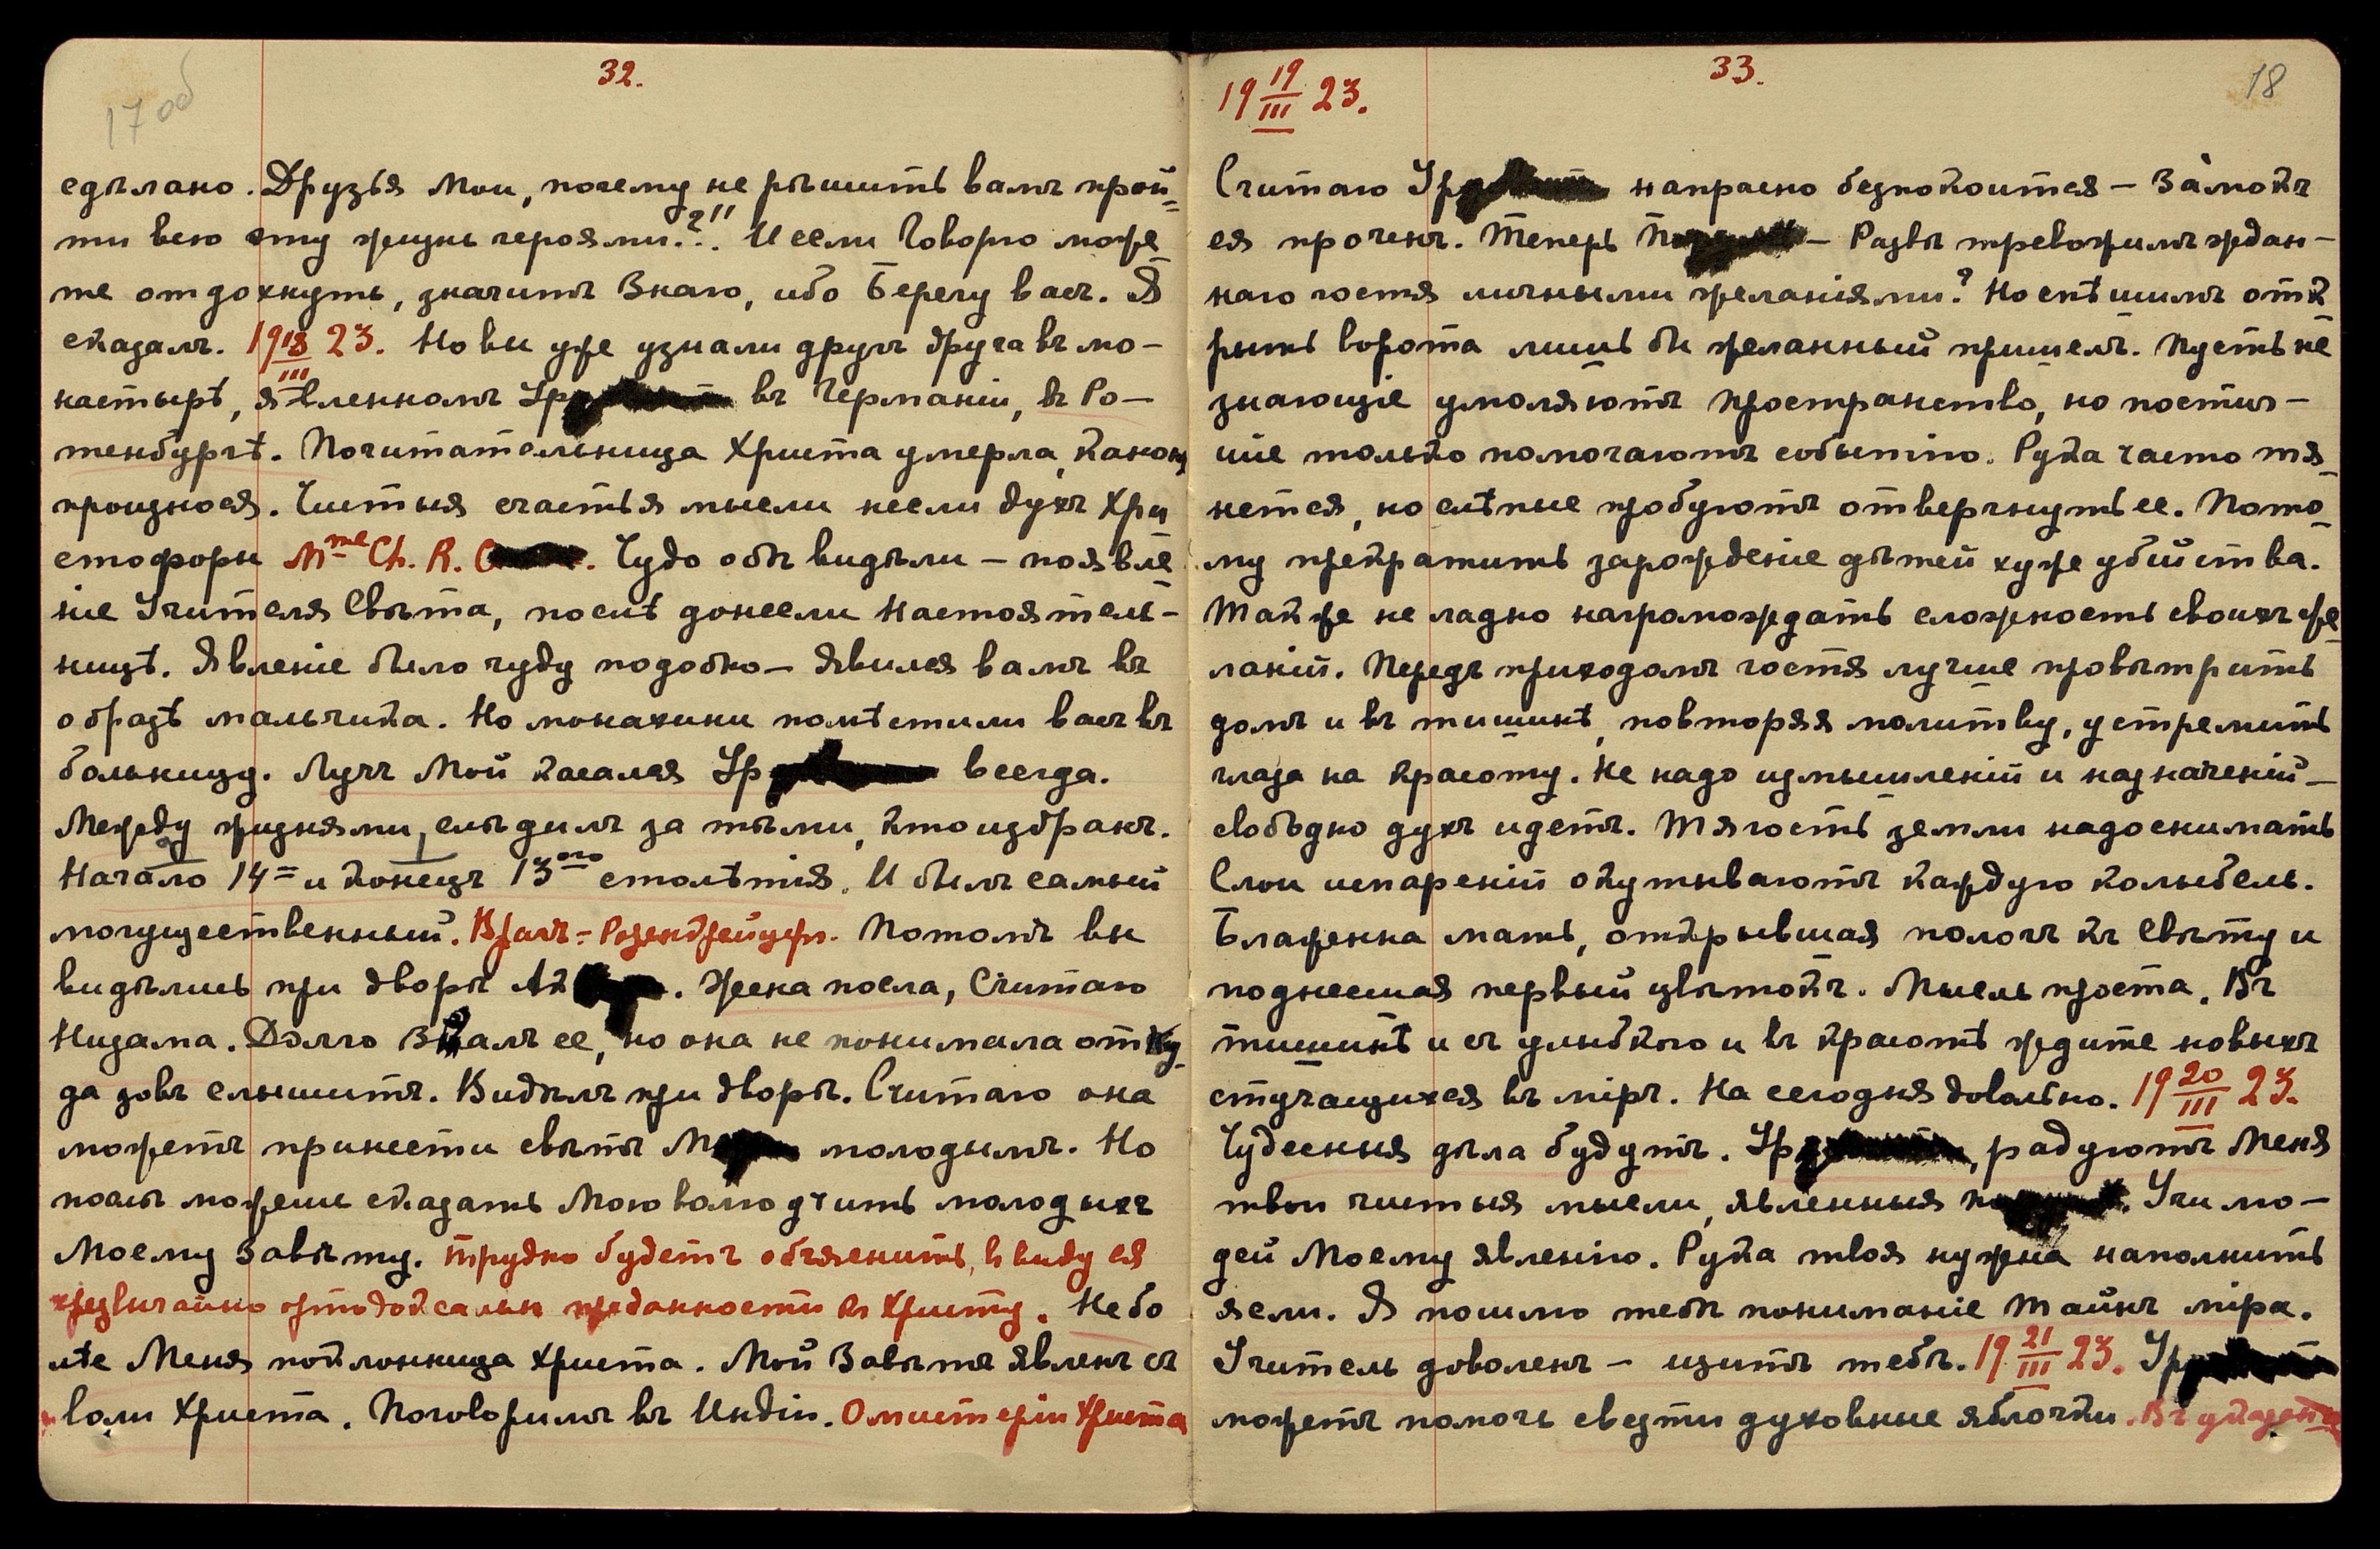 17 об
32.
сдѣлано. Друзья Мои, почему не рѣшить вамъ прой-
ти всю эту жизнь героями?!! И если Говорю може-
те отдохнуть, значитъ Знаю, ибо Берегу васъ. Я
сказалъ. 19 18/III 23. Но вы уже узнали другъ друга въ мо-
настырѣ, явленномъ Ур въ Германіи, въ Ро-
тенбургѣ. Почитательница Христа умерла, каноны
произнося. Чистыя счастья мысли несли духъ Хри
стофоры Mme Ch. R. Чудо обѣ видѣли - появле-
ніе Учителя Свѣта, послѣ донесли Настоятель-
ницѣ. Явленіе было чуду подобно - Явился вамъ въ
образѣ мальчика. Но монахини помѣстили васъ въ
больницу. Лучъ Мой касался Ур всегда.
Между жизнями, слѣдилъ за тѣми, кто избранъ.
Начало 14= и конецъ 13ого столѣтія. И былъ самый
могущественный. Врагъ - Розенкрейцеръ. Потомъ вы
видѣлись при Дворѣ Ак. Жена посла, Считаю
Низама. Долго Звалъ ее, но она не понимала отку-
да зовъ слышитъ. Видѣлъ при Дворѣ. Считаю она
можетъ принести свѣтъ М молодымъ. Но
послѣ можешь сказать Мою волю учить молодыхъ
Моему Завѣту. Трудно будетъ объяснить, въ виду ея
чрезвычайно ортодоксальн преданности къ Христу. Небо
лѣе Меня поклонница Христа. Мой Завѣтъ явленъ съ
воли Христа. Поговоримъ въ Индіи. О мистеріи Христа
19 19/III 23.
33.
18
Считаю Ур напрасно безпокоится - Замокъ
ея проченъ. Теперь П - Развѣ тревожимъ ждан-
наго гостя личными желаніями? Но спѣшимъ отк
рыть ворота лишь бы желанный пришелъ. Пусть не
знающіе умоляютъ пространство, но постиг-
шіе только помогаютъ событію. Рука часто тя-
нется, но слѣпые пробуютъ отвергнуть ее. Пото-
му прекратить зарожденіе дѣтей хуже убійства.
Также не ладно нагромождать сложность своихъ же-
ланій. Передъ приходомъ гостя лучше провѣтрить
домъ и въ тишинѣ, повторяя молитву, устремить
глаза на красоту. Не надо измышленій и назначеній -
свободно духъ идетъ. Тягость земли надо снимать
Слои испареній окутываютъ каждую колыбель.
Блаженна мать, открывшая пологъ къ Свѣту и
поднесшая первый цвѣтокъ. Мысль проста. Въ
тишинѣ и съ улыбкою и въ красотѣ ждите новыхъ
стучащихся въ міръ. На сегодня довольно. 19 20/III 23.
Чудесныя дѣла будутъ. Ур, радуютъ Меня
твои чистыя мысли, явленныя. Учи лю-
дей Моему явленію. Рука твоя нужна наполнить
ясли. Я пошлю тебѣ пониманіе тайнъ міра.
Учитель доволенъ - щитъ тебѣ. 19 21/III 23. Ур
можетъ помочь свезти духовные яблочки. Въ указаніи